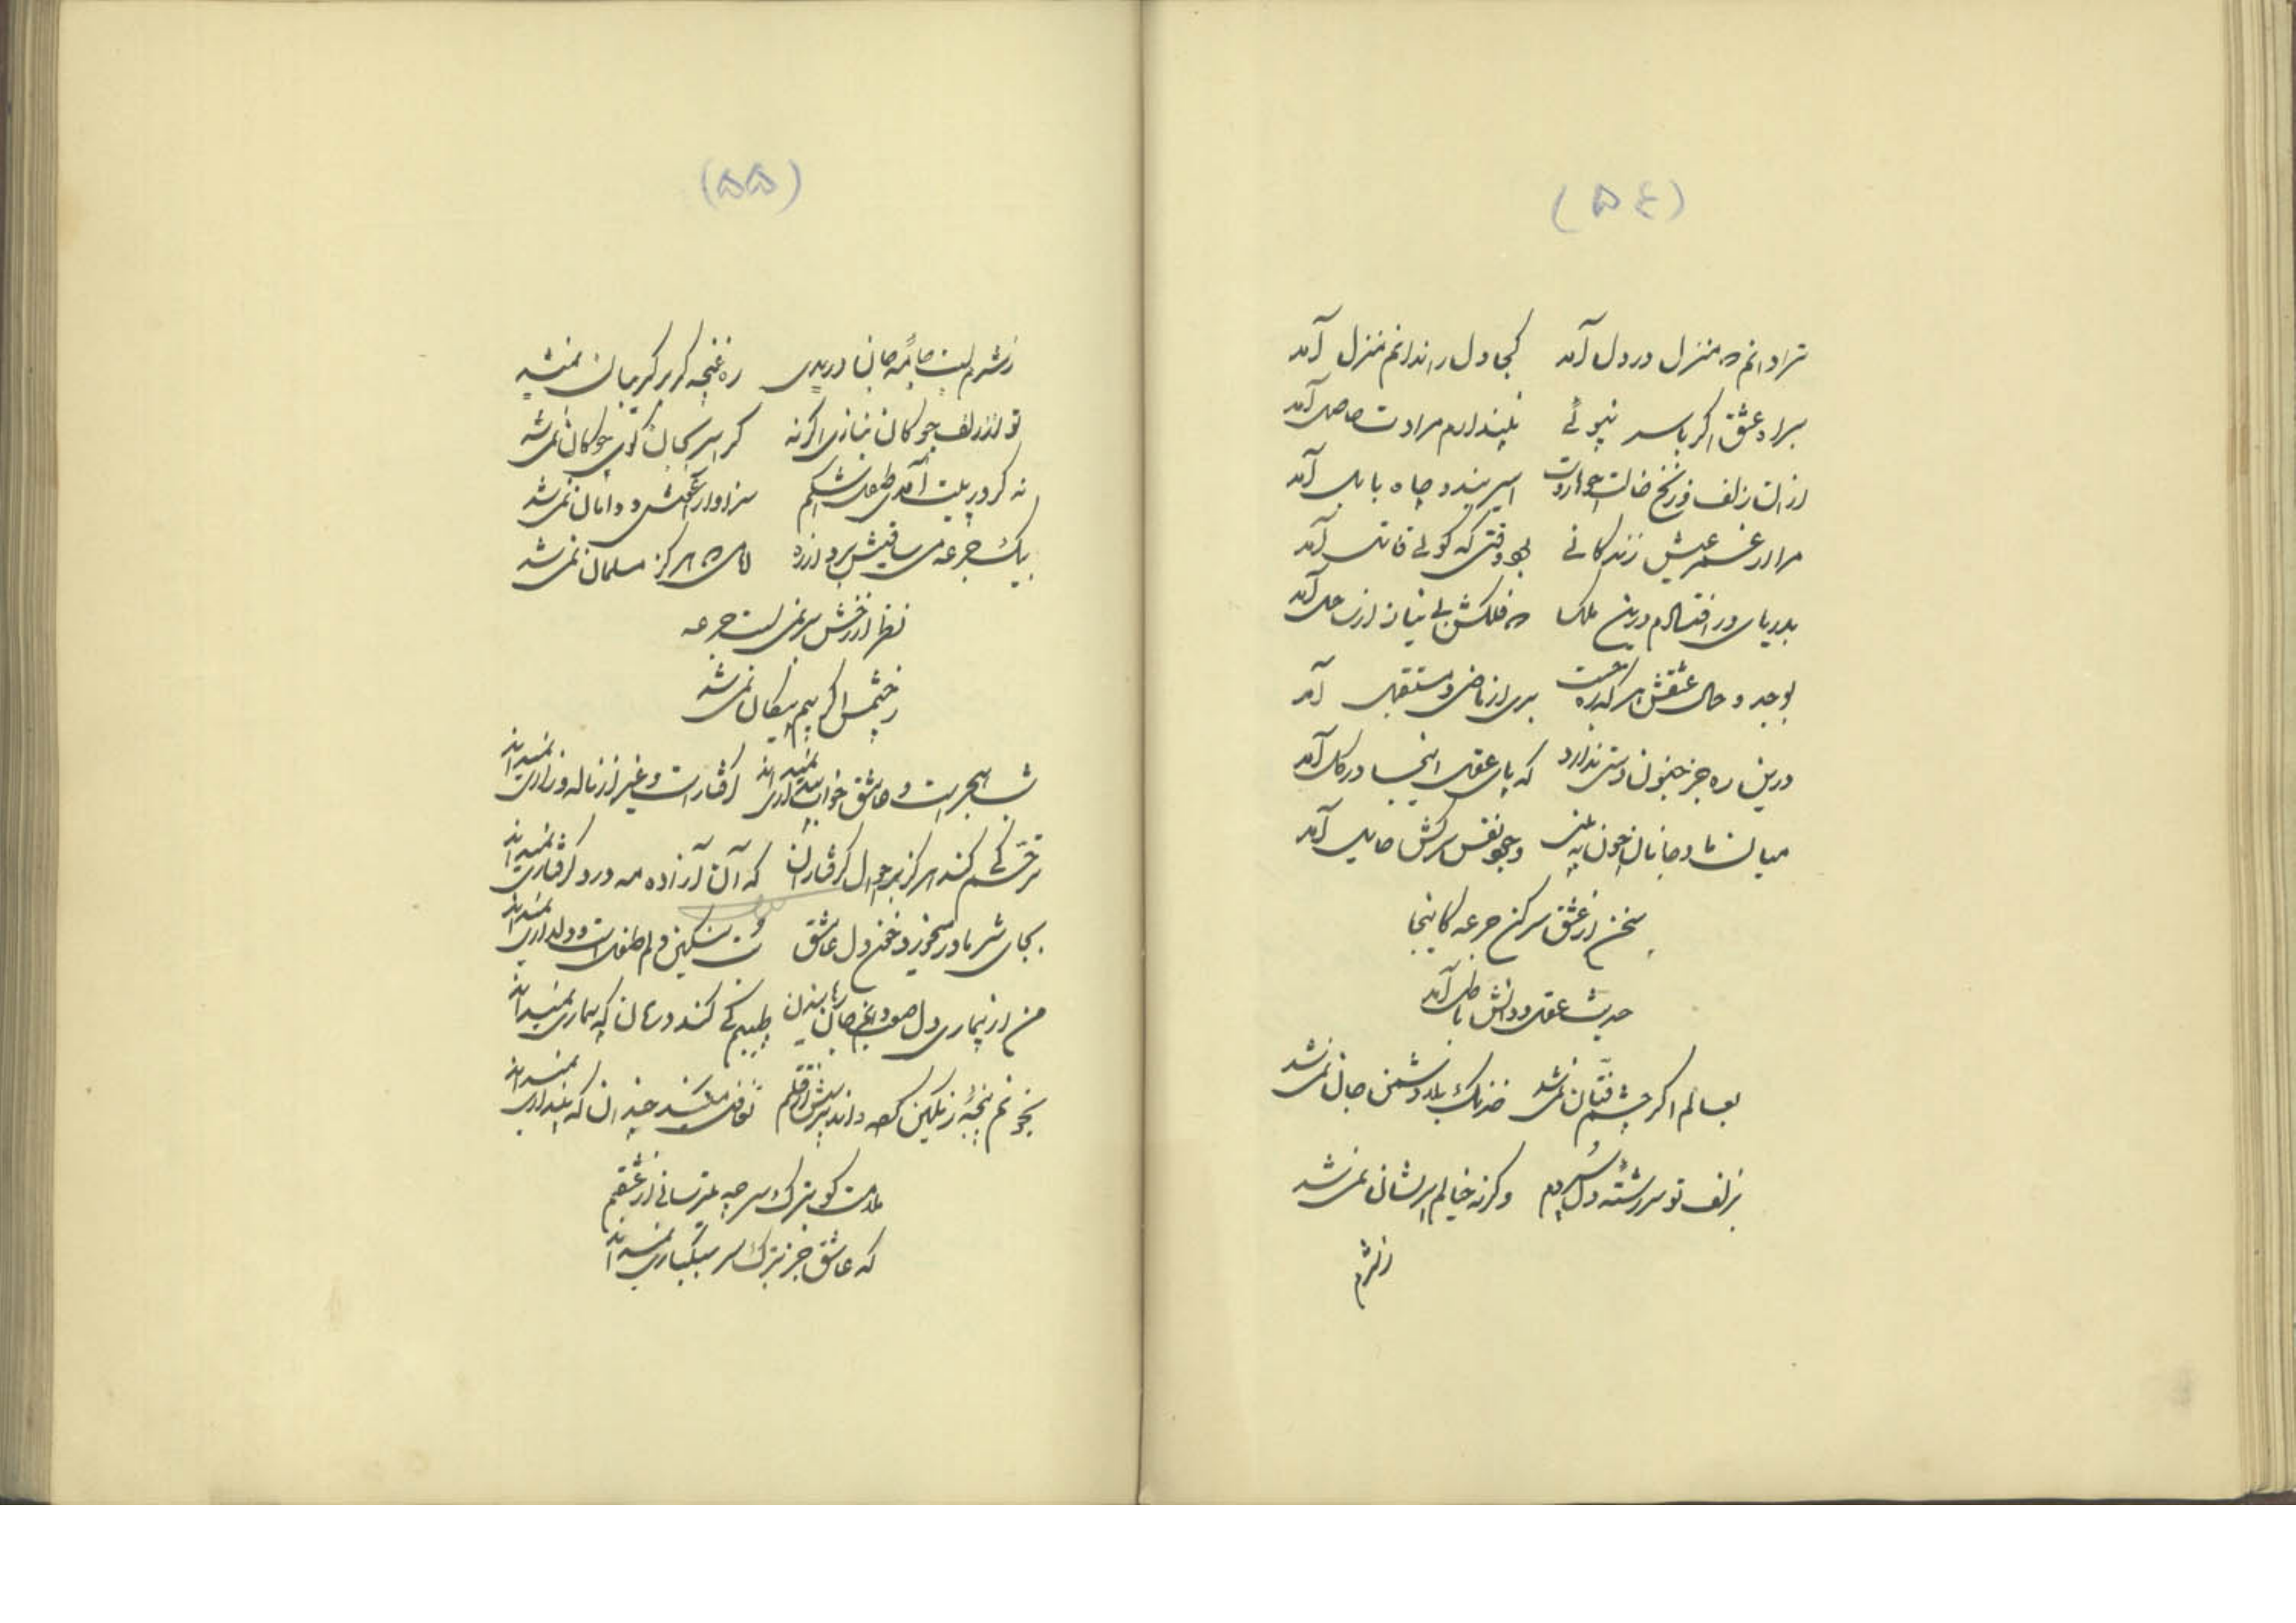 (۵۴)
ترا دانم که منزل در دل آمد کجا دل را ندانم منزل آمد
براه عشق اگر با سر نپوئی نپندارم مرادت حاصل آمد
از ان زلف و زنخ خالت چو هاروت اسیر بند و چاه بابل آمد
مرا در غم عیش زندگانی بهر وقتی که گوئی قاتل آمد
بدریای در افتادم درین ملک که فلکش بی نیاز از ساحل آمد
بوجد و حال عشقش هر که ره جست بری از ماضی و مستقبل آمد
درین ره جز جنون دستی ندارد که پای عقل اینجا در گل آمد
میان ما و جانان چون به وجود نفس سرکش حایل آمد
سخن از عشق سر کن جرعه کاینجا
حدیث عقل و دانش باطل آمد
بعالم اگر چشم فتّان نمی‌شد خدنگ بلا دشمن جان نمی‌شد
بزلف تو سر رشته دل سپردم وگرنه خیالم پریشان نمی‌شد
ز شرم
(۵۵)
ز شرم لبت جامهٔ جان دریدی ره غنچه گر بر گریبان نمیشد
تو از زلف چوگان نبازی اگر نه کر اسر بجان گوی چوگان نمی‌شد
نه گر در پیت آمدی طفل اشکم سزاوار آغوش و دامان نمی‌شد
بیک جرعه می ساقیش برد از ره که هرگز مسلمان نمی‌شد
نظر از رخش بر نمی‌بست جرعه
ز خشمش اگر بیم پیکان نمی‌شد
شب هجرست و عاشق خواب بیداری نمیداند گرفتارست و غیر از ناله و زاری نمیداند
ترحّم کی کند هرگز بر احوال گرفتاران که آن آزاده مه درد گرفتاری نمیداند
بجای شیر مادر میخورد خون دل عاشق بت سنگین دلم طفل است و دلداری نمیداند
من از بیماری دل صعوبتهای جان طبیبم کی کند درمان که بیماری نمیداند
بخونم پنجهٔ رنگین که داند پیش از قتلم تغافل میکند چندان که پنداری نمیداند
ملامت گو بترک سر چه میترسانی از عشقم
که عاشق جز بترک سر سبکباری نمیداند